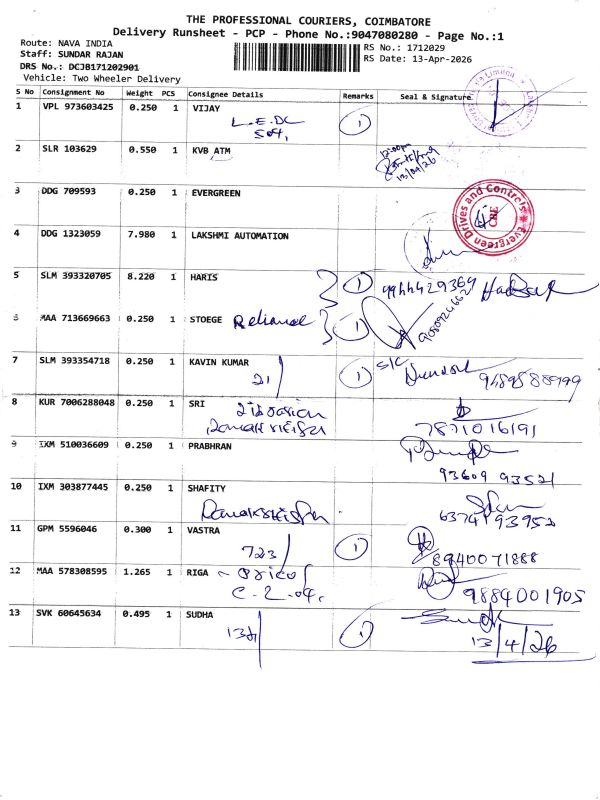 THE PROFESSIONAL COURIERS, COIMBATORE
Delivery Runsheet - PCP - Phone No.:9047080280 - Page No.:1
Route: NAVA INDIA
Staff: SUNDAR RAJAN
DRS No.: DCJB171202901
Vehicle: Two Wheeler Delivery
RS No.: 1712029
RS Date: 13-Apr-2026
S No Consignment No Weight PCS Consignee Details Remarks Seal & Signature
1 VPL 973603425 0.250 1 VIJAY 1
L.E.DC
2 SLR 103629 0.550 1 KVB ATM
12:00pm
13/04/26
3 DDG 709593 0.250 1 EVERGREEN
Evergreen Drives and Controls
CBE
4 DDG 1323059 7.980 1 LAKSHMI AUTOMATION
5 SLM 393320705 8.220 1 HARIS 1 9944429369
6 MAA 713669663 0.250 1 STOEGE Reliance 1
7 SLM 393354718 0.250 1 KAVIN KUMAR 1
21
8 KUR 7006288048 0.250 1 SRI
7871016191
9 IXM 510036609 0.250 1 PRABHRAN
93609 93521
10 IXM 303877445 0.250 1 SHAFITY
6374193952
11 GPM 5596046 0.300 1 VASTRA 1
723
8940071888
12 MAA 578308595 1.265 1 RIGA
9884001905
13 SVK 60645634 0.495 1 SUDHA 1
13/4/26